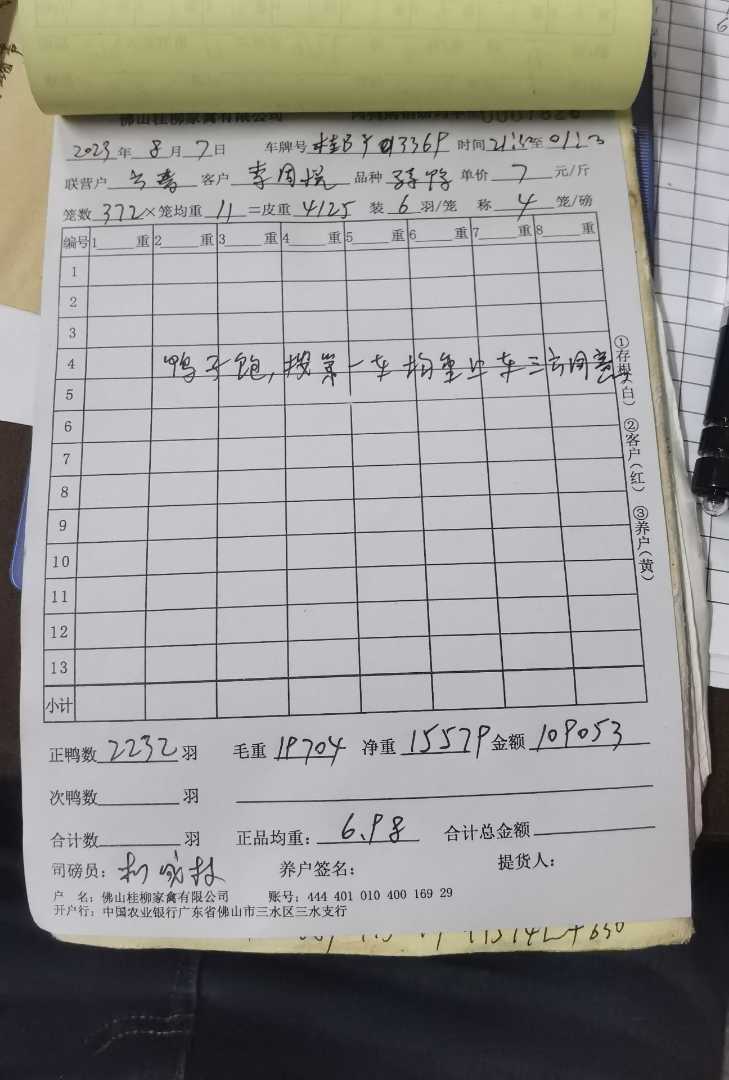 佛山桂柳家禽有限公司 0007826
2023年8月7日 车牌号 桂 时间
联营户 客户 李周 品种 鸭 单价 7 元/斤
笼数 372×笼均重 11 =皮重 4125 装 6 羽/笼 称 4 笼/磅
编号 1 重 2 重 3 重 4 重 5 重 6 重 7 重 8 重
1
2
3
4
鸭子饱,按第一车均重
5
6
7
8
9
10
11
12
13
小计
①存根(白) ②客户(红) ③养户(黄)
正鸭数 2232 羽 毛重 19704 净重 15579 金额 109053
次鸭数 羽
合计数 羽 正品均重: 6.98 合计总金额
司磅员: 养户签名: 提货人:
户 名: 佛山桂柳家禽有限公司 账号: 444 401 010 400 169 29
开户行: 中国农业银行广东省佛山市三水区三水支行